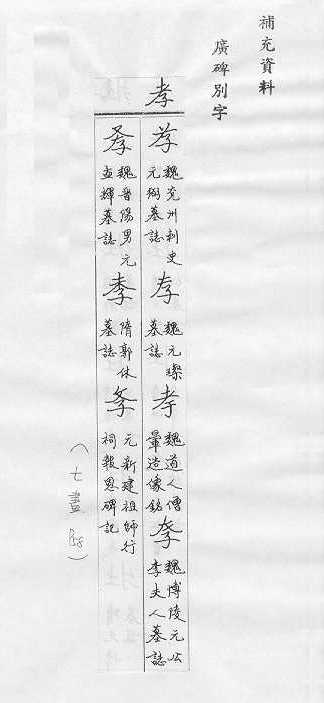 補充資料
廣碑別字
孝
魏兗州刺史
元弼墓誌
魏元璨
墓誌
孝
魏道人僧
暈造像銘
魏博陵元公
李夫人墓誌
魏晉陽男元
孟輝墓誌
隋郭休
墓誌
元新建祖師行
祠報恩碑記
(七畫 p58)